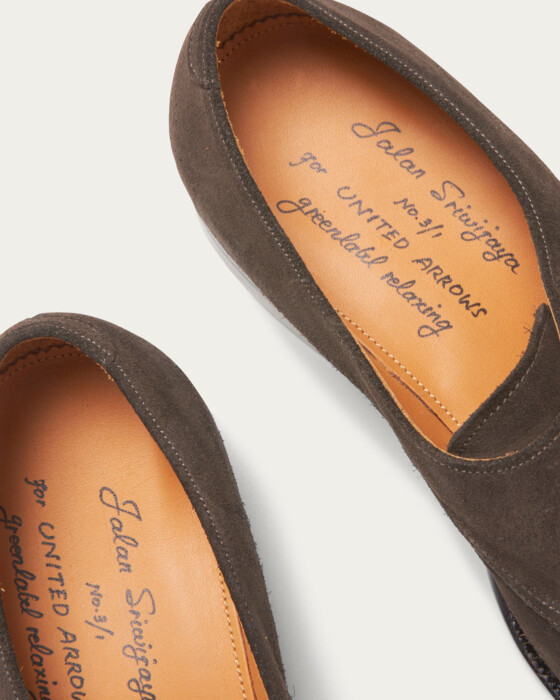 Jalan Sriwijaya
No.3/1
for UNITED ARROWS
greenlabel relaxing
Jalan Sriwijaya
No.3/1
for UNITED ARROWS
greenlabel relaxing